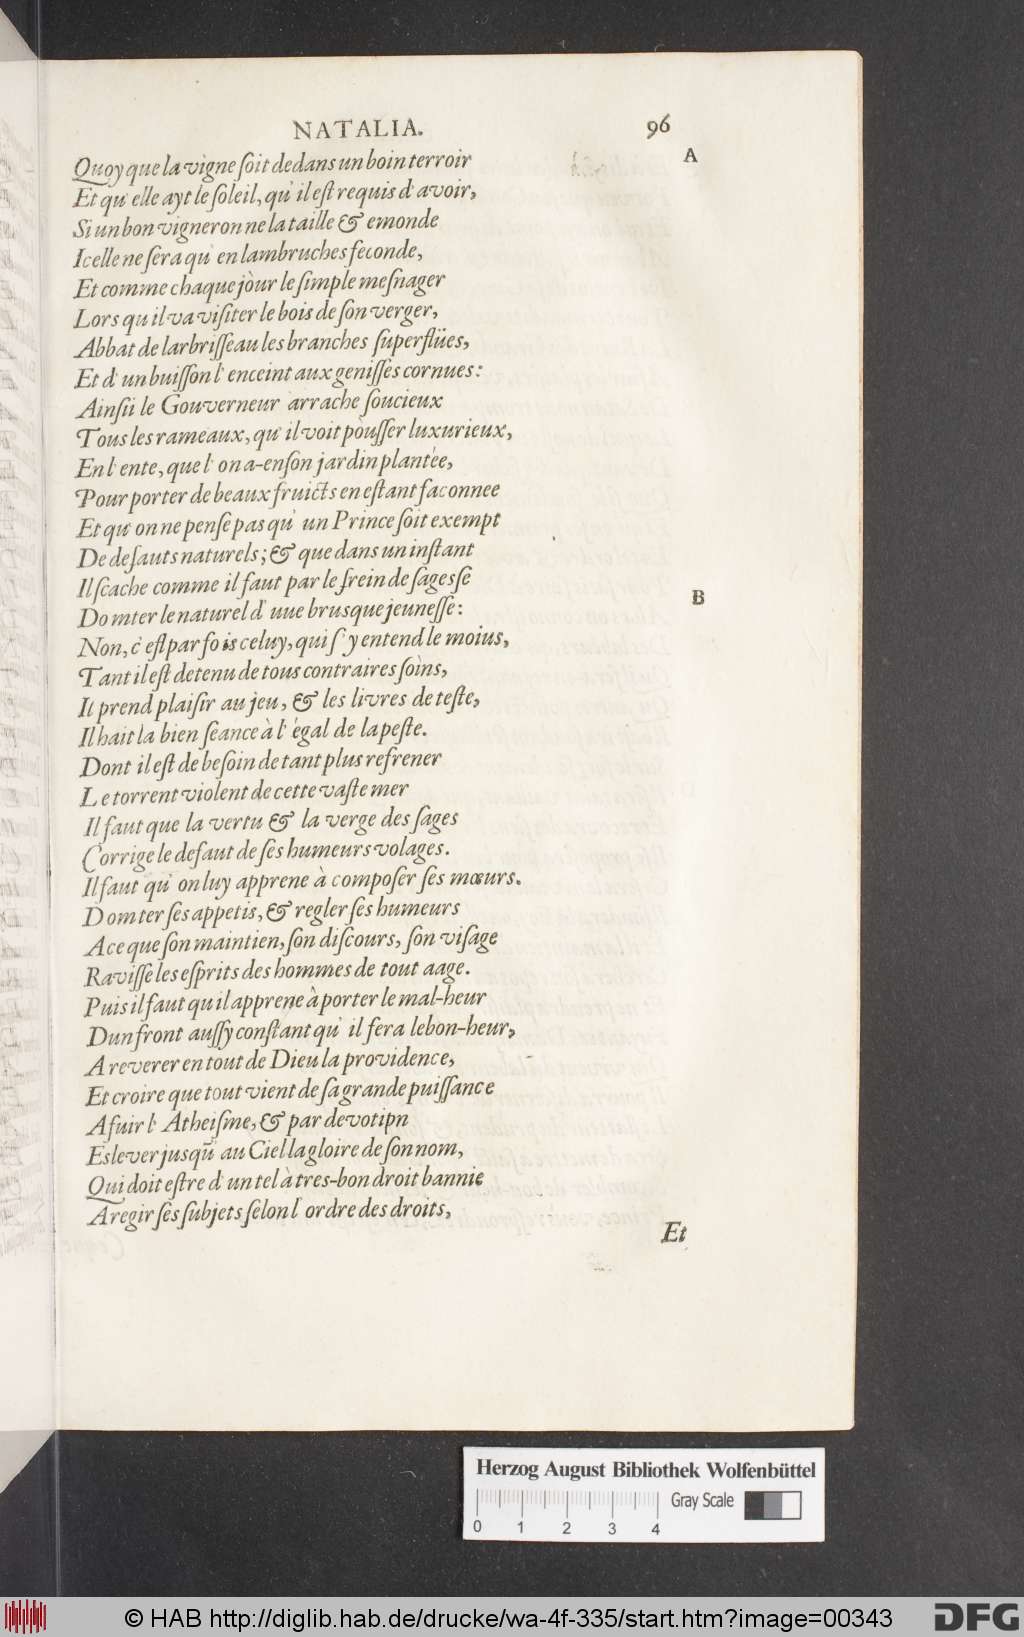 NATALIA. 96
A
Quoy que la vigne ſoit dedans un boin terroir
Et qu' elle ayt le ſoleil, qu' il eſt requis d' avoir,
Si un bon vigneron ne la taille & emonde
Icelle ne ſera qu' en lambruches feconde,
Et comme chaque jòur le ſimple meſnager
Lors qu il va viſiter le bois de ſon verger,
Abbat de larbriſſeau les branches ſuperflües,
Et d' un buiſſon l' enceint aux geniſſes cornues:
Ainſii le Gouverneur arrache ſoucieux
Tous les rameaux, qu' il voit pòuſſer luxurieux,
En l' ente, que l' on a-en ſon jardin plantèe,
Pour porter de beaux fruicts en eſtant faconnee
Et qu' on ne penſe pas qu' un Prince ſoit exempt
De defauts naturels; & que dans un inſtant
Il ſcache comme il faut par le frein de ſagesſe
Domter le naturel d' uue brusque jeuneſſe:
B
Non, c' eſt par fois celuy, qui ſ' y entend le moius,
Tant il eſt detenu de tous contraires ſoìns,
Il prend plaiſir au jeu, & les livres deteſte,
Il hait la bien ſeance à l' égal de la peſte.
Dont il eſt de beſoin de tant plus refrener
Le torrent violent de cette vaſte mer
Il faut que la vertu & la verge des ſages
Corrige le defaut de ſes humeurs volages.
Il faut qu' on luy apprene à compoſer ſes mœurs.
Domter ſes appetis, & regler ſes humeurs
A ce que ſon maintien, ſon diſcours, ſon viſage
Raviſſe les eſprits des hommes de tout aage.
Puis il faut qu il apprene à porter le mal-heur
Dun front auſſy conſtant qu' il fera le bon-heur,
A reverer en tout de Dieu la providence,
Et croire que tout vient de ſa grande puiſſance
A fuir l' Atheiſme, & par devotipn
Eslever jusqu' au Ciel la gloire de ſon nom,
Qui doit eſtre d' un tel à tres-bon droit bannie
A regir ſes ſubjets ſelon l' ordre des droits,
Et
Herzog August Bibliothek Wolfenbüttel
Gray Scale
0 1 2 3 4
© HAB http://diglib.hab.de/drucke/wa-4f-335/start.htm?image=00343 DFG